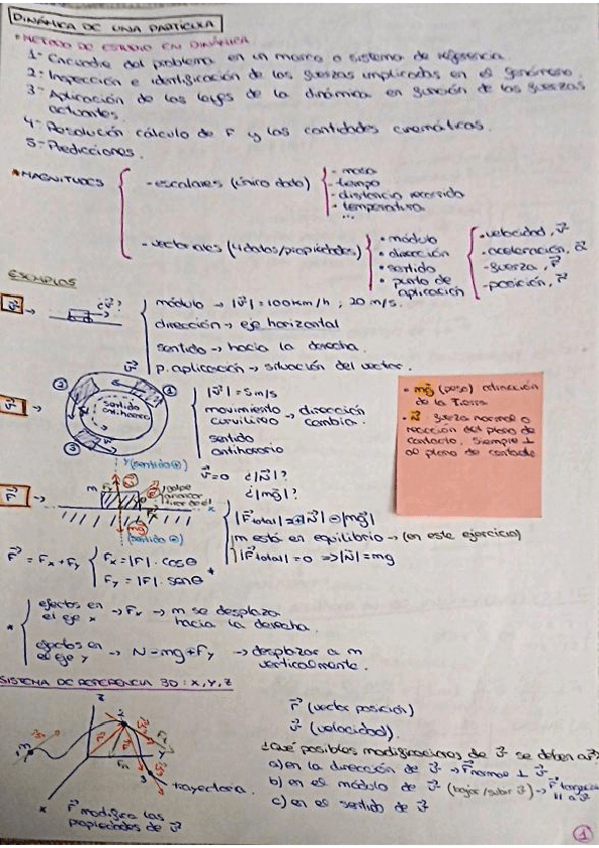 DINÁMICA DE UNA PARTÍCULA
* MÉTODO DE ESTUDIO EN DINÁMICA
1- Encuadre del problema en un marco o sistema de referencia.
2- Inspección e identificación de las fuerzas implicadas en el fenómeno.
3- Aplicación de las leyes de la dinámica en función de las fuerzas
actuantes.
4- Resolución cálculo de F y las cantidades cinemáticas.
5- Predicciones.
* MAGNITUDES
- escalares (único dato)
- masa
- tiempo
- distancia recorrida
• temperatura
...
- vectoriales (4 datos/propiedades)
• módulo
• dirección
• sentido
• punto de
aplicación
- velocidad, v⃗
- aceleración, a⃗
- fuerza, F⃗
- posición, r⃗
EJEMPLOS
v⃗ →
¿v⃗?
módulo → |v⃗| = 100km/h ; 20 m/s.
dirección → eje horizontal
sentido → hacia la derecha.
p. aplicación → situación del vector.
v⃗ →
① ② ③
sentido
antihorario
|v⃗| = 5m/s
movimiento → dirección
curvilíneo cambia.
sentido
antihorario
• mg⃗ (peso) atracción
de la Tierra
• N⃗ fuerza normal o
reacción del plano de
contacto. Siempre ⊥
al plano de contacto
F⃗ →
y (sentido ⊕)
m
x
mg⃗
(sentido ⊖)
v⃗=0 ¿|N⃗|?
¿|mg⃗|?
|F⃗total| = ⊕|N⃗| ⊖ |mg⃗|
m está en equilibrio → (en este ejercicio)
|F⃗total| = 0 => |N⃗| = mg
F⃗ = Fx + Fy
Fx = |F| · cos θ
Fy = |F| · sen θ *
*
efectos en → Fx → m se desplaza
el eje x hacia la derecha.
efectos en → N = mg + Fy → desplazar a m
el eje y verticalmente.
SISTEMA DE REFERENCIA 3D : X, Y, Z
z
y
x
trayectoria.
F⃗ modifica las
propiedades de v⃗
r⃗ (vector posición)
v⃗ (velocidad).
¿Qué posibles modificaciones de v⃗ se deben a F⃗?
a) en la dirección de v⃗ → F⃗ normal ⊥ v⃗
b) en el módulo de v⃗ (bajar/subir v⃗) → F⃗
|| a v⃗
c) en el sentido de v⃗
①